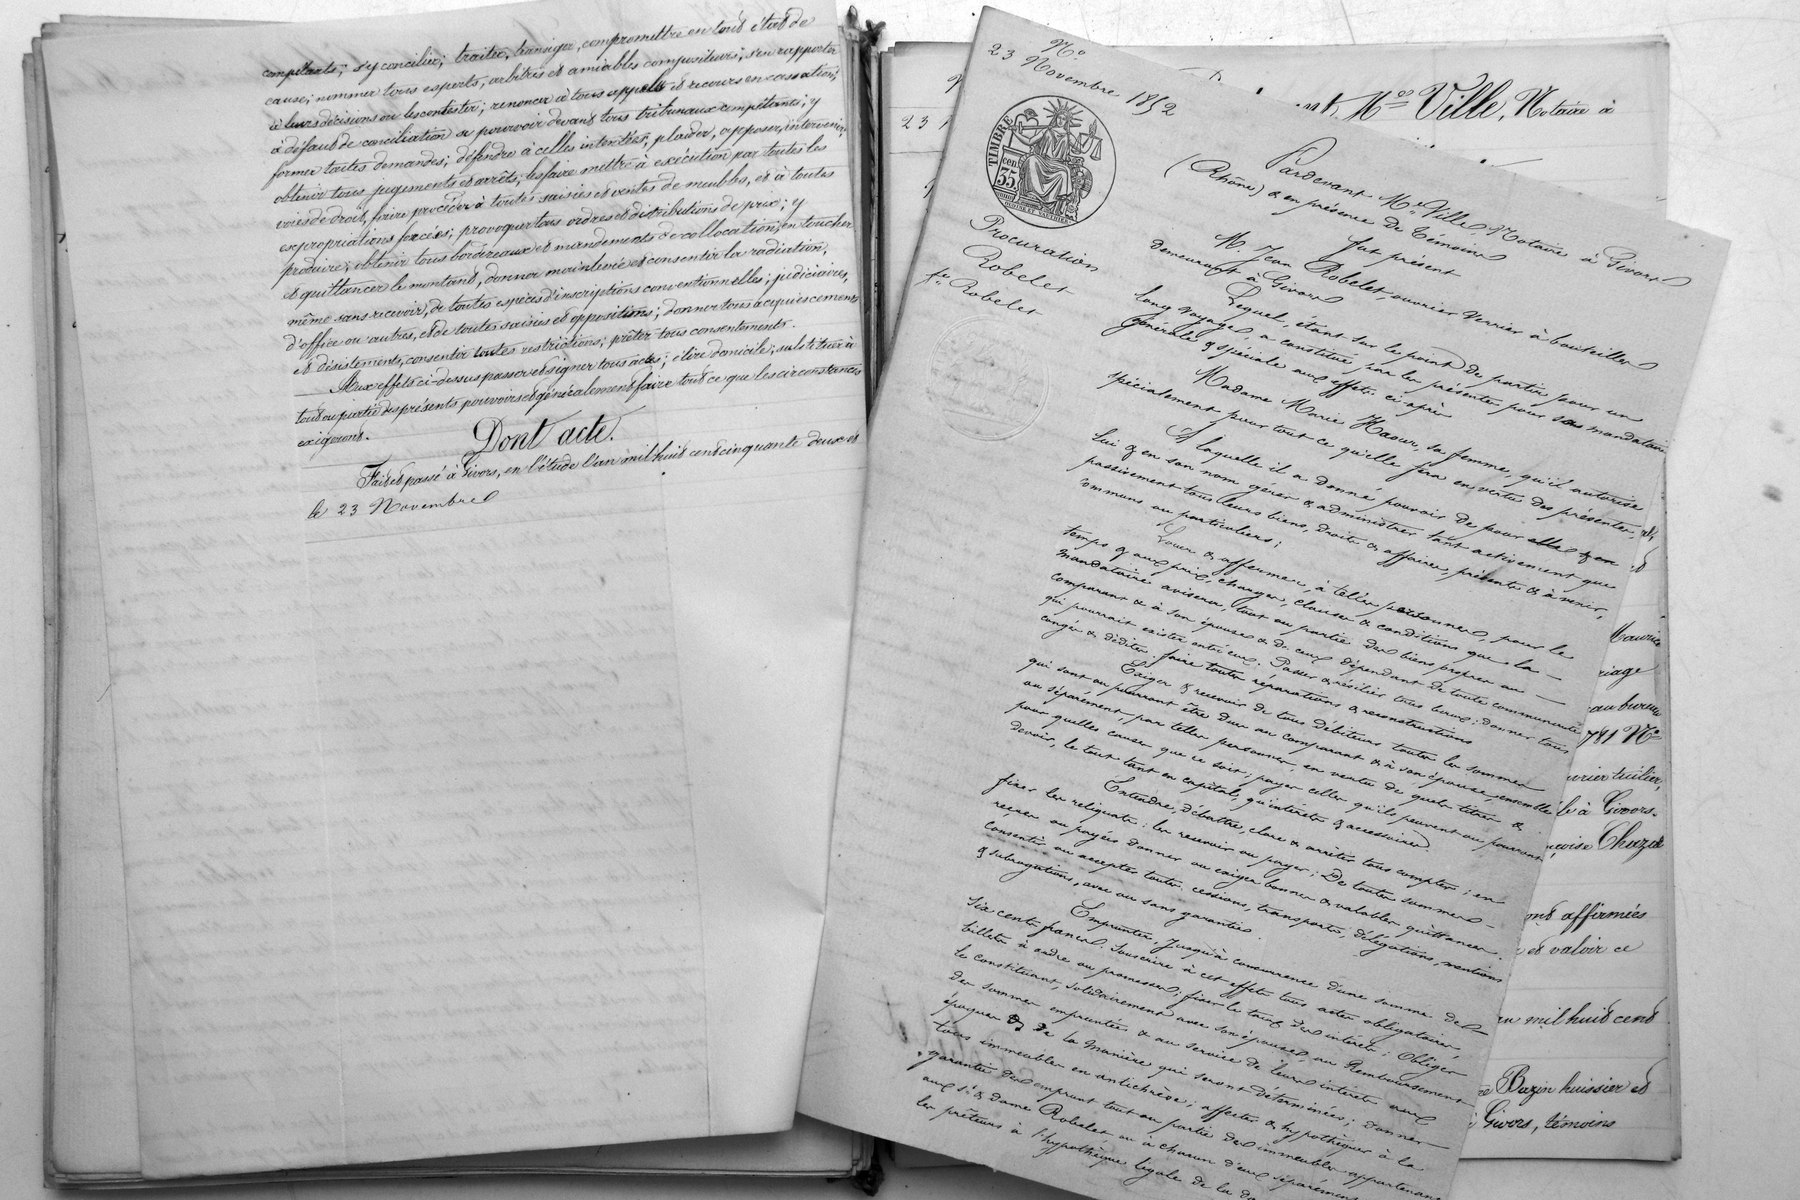 compétants; s'y concilier; traiter, transiger, compromettre en tous états de
cause; nommer tous experts, arbitres et amiables compositeurs; s'en rapporter
à leurs décisions ou les contester; renoncer à tous appels et recours en cassation;
à défaut de conciliation se pourvoir devant tous tribunaux compétants; y
former toutes demandes; défendre à celles intentées; plaider, opposer, intervenir,
obtenir tous jugements et arrêts; les faire mettre à exécution par toutes les
voies de droit, faire procéder à toutes saisies et ventes de meubles, et à toutes
expropriations forcées; provoquer tous ordres et distributions de prix; y
produire; obtenir tous bordereaux et mandements de collocation; en toucher
et quittancer le montant, donner mainlevée et consentir la radiation,
même sans recevoir, de toutes espèces d'inscriptions conventionnelles, judiciaires,
d'office ou autres, et de toutes saisies et oppositions; donner tous acquiescements
et désistements, consentir toutes restrictions; prêter tous consentements.
Aux effets ci-dessus passer et signer tous actes; élire domicile; substituer à
tout ou partie des présents pouvoirs et généralement faire tout ce que les circonstances
exigeront.
Dont acte.
Fait et passé à Givors, en l'étude l'an mil huit cent cinquante deux et
le 23 Novembre
No
23 Novembre 1852
TIMBRE
35 cen
Procuration
Robelet
fe Robelet
Pardevant Me Ville Notaire à Givors
(Rhône) & en présence de témoins
fut présent
M. Jean Robelet, ouvrier Verrier à bouteilles
demeurant à Givors
Lequel, étant sur le point de partir pour un
long voyage, a constitué par les présentes pour sa mandataire
générale & spéciale aux effets ci-après
Madame Marie Haour, sa femme, qu'il autorise
spécialement pour tout ce qu'elle fera en vertu des présentes,
À laquelle il a donné pouvoir de pour elle & en
lui & en son nom gérer & administrer tant activement que
passivement tous leurs biens, droits & affaires, présents & à venir,
communs ou particuliers;
Louer & affermer, à telles personnes, pour le
temps & aux prix, charges, clauses & conditions que la
mandataire avisera, tout ou partie des biens propres au
comparant & à son épouse & de ceux dépendant de toute communauté
qui pourrait exister entr'eux. Passer & résilier tous baux; donner tous
congés & dédites. faire toutes réparations & reconstructions
Exiger & recevoir de tous débiteurs toutes les sommes
qui sont ou pourront être dues au comparant & à son épouse, ensemble
ou séparément, par telles personnes, en vertu de quels titres &
pour quelles causes que ce soit; payer celles qu'ils peuvent ou pourront
devoir, le tout tant en capital, qu'intérêts & accessoires.
Entendre, débattre, clore & arrêter tous comptes; en
fixer les reliquats: les recevoir ou payer; De toutes sommes
reçues ou payées donner ou exiger bonnes & valables quittances.
Consentir ou accepter toutes cessions, transports, délégations, mentions
& subrogations, avec ou sans garanties.
Emprunter, jusqu'à concurrence d'une somme de
six cents francs. Souscrire à cet effet tous actes obligatoires,
billets à ordre ou promesses; fixer le taux des intérêts; Obliger
le constituant, solidairement avec son épouse, au Remboursement
des sommes empruntées & au service de leurs intérêts aux
époques & de la manière qui seront déterminées; donner
tous immeubles en antichrèse; affecter & hypothéquer à la
garantie des emprunts tout ou partie des immeubles appartenant
aux sr & dame Robelet ou à chacun d'eux séparément
les prêteurs à l'hypothèque légale de la da
Mes Ville, Notaire à
23
Maurice
riage
au bureau
781 No
uvrier tuilier,
le à Givors.
nçoise Chuzel
ont affirmées
et valoir ce
an mil huit cent
Bazin huissier et
Givors, témoins